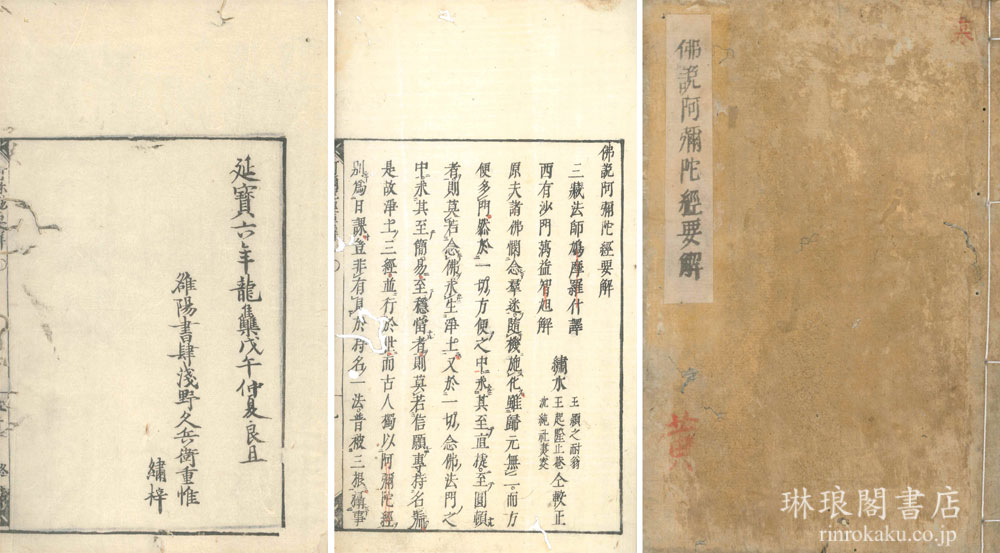 延寶六年龍集戊午仲夏良旦
雒陽書肆淺野久兵衛重惟
繡梓
佛說阿彌陀經要解
三藏法師鳩摩羅什譯
西有沙門蕅益智旭解
繡水
王
仝較正
原夫諸佛憫念羣迷隨機施化雖歸元無二而方
便多門然於一切方便之中求其至直捷至圓頓
者則莫若念佛求生淨土又於一切念佛法門之
中求其至簡易至穩當者則莫若信願專持名號
是故淨土三經並行於世而古人獨以阿彌陀經
別爲日課豈非有見於持名一法普被三根攝事
佛說阿彌陀經要解
共
黄
琳琅閣書店
rinrokaku.co.jp